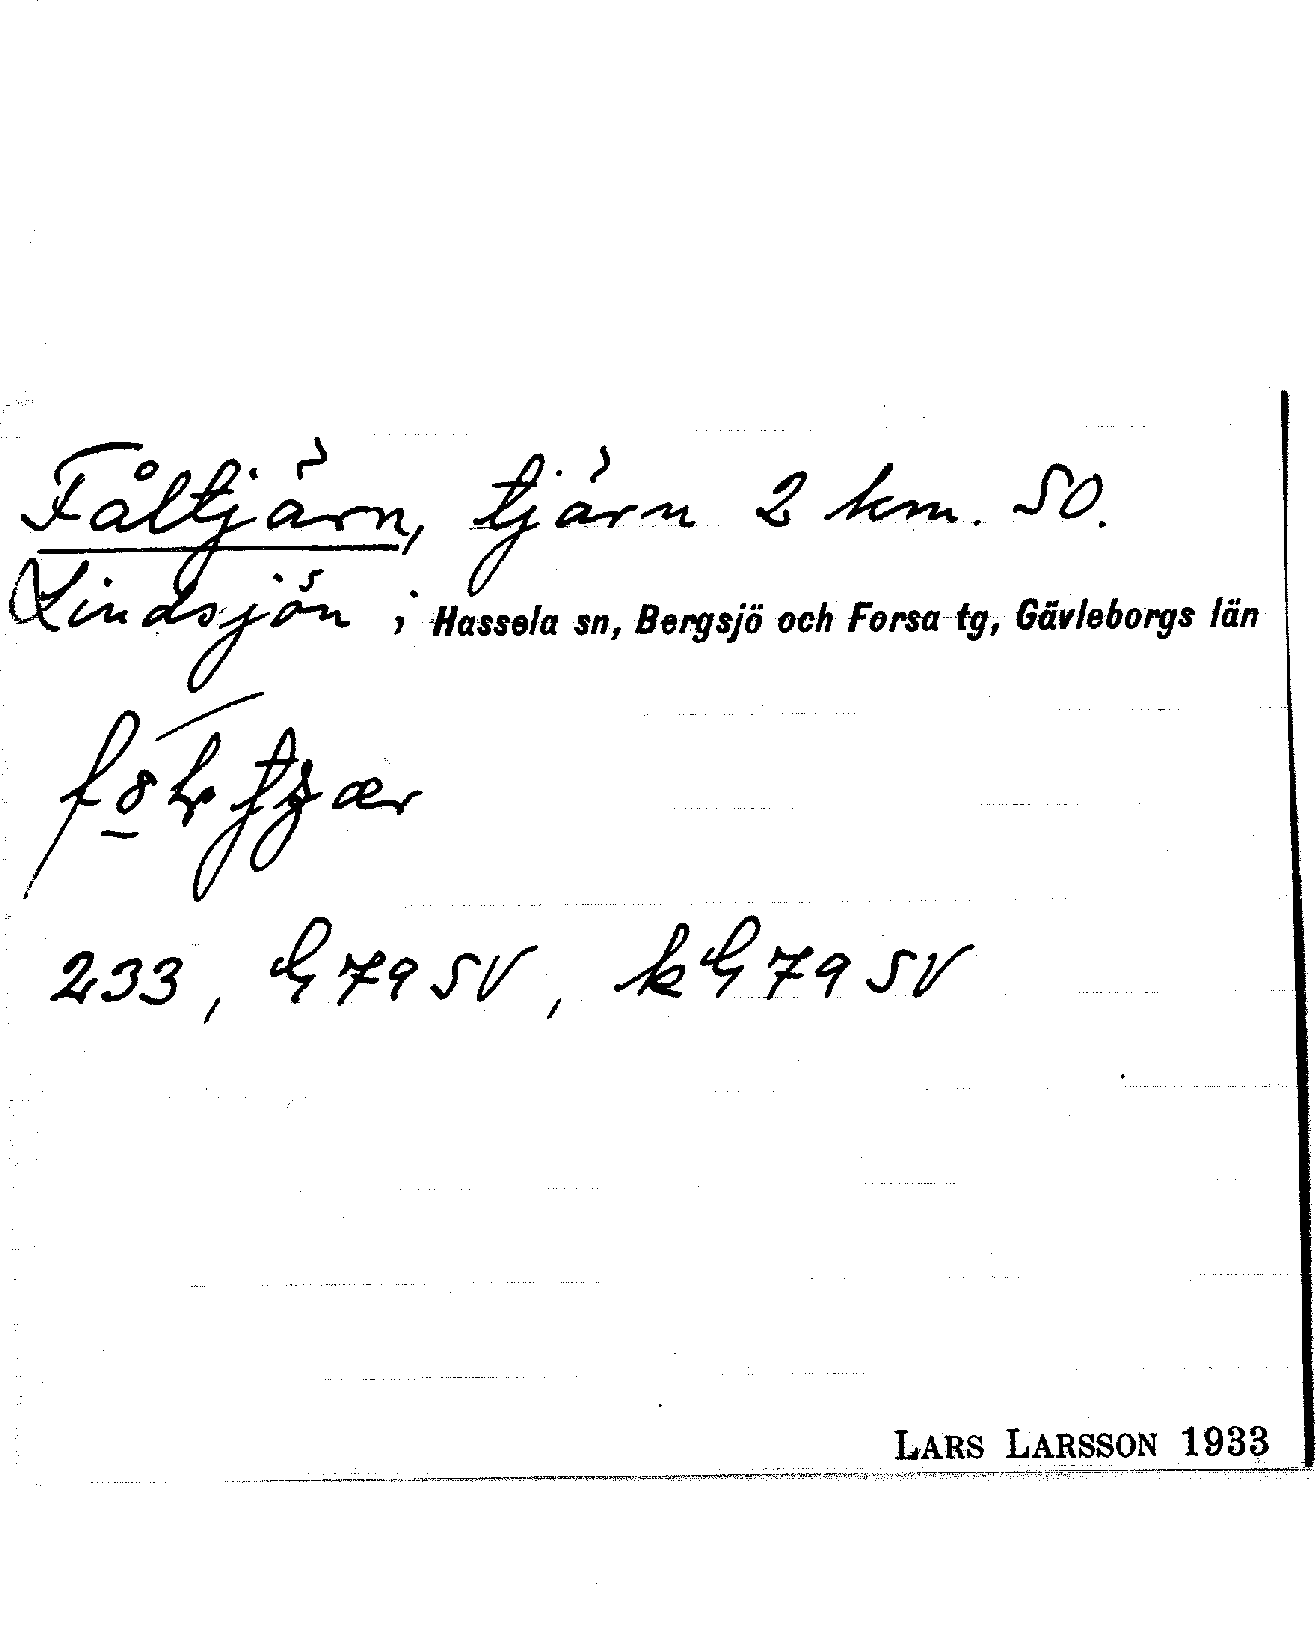 Fåltjärn, tjärn 2 km. SO.
Lindsjön i Hassela sn, Bergsjö och Forsa tg, Gävleborgs län
233, h 79 SV, kh 79 SV
LARS LARSSON 1933